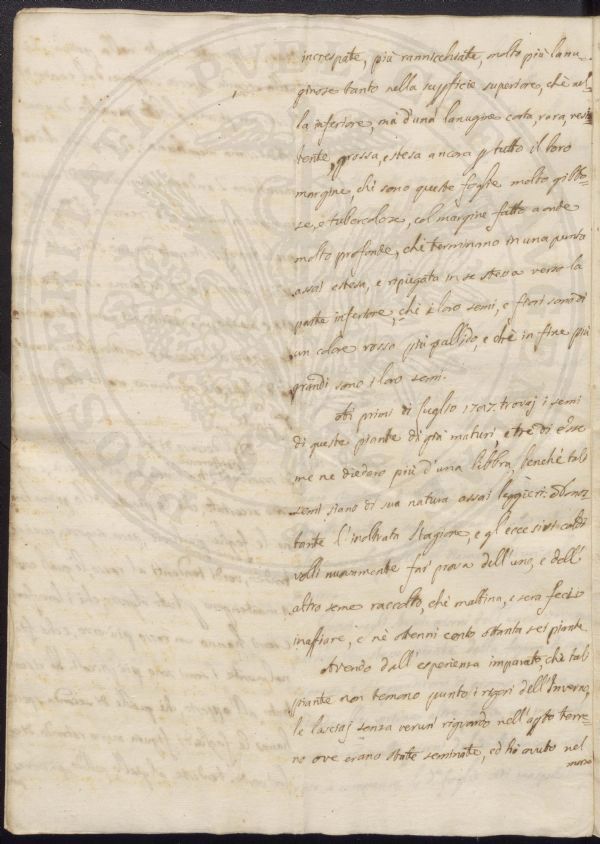 increspate, più rannicchiate, molto più lanu-
ginose tanto nella supficie superiore, chè nel-
la inferiore, mà d'una lanugine corta, rara, resis
tente, grossa, estesa ancora p tutto il loro
margine, chi sono queste foglie molto gibbo-
se, e tubercolose, col margine fatto a onde
molto profonde, chè terminano in una punta
assai estesa, e ripiegata in se stessa verso la
parte inferiore, chè i loro semi, e fiori sono di
un colore rosso più pallido, e chè in fine più
grandi sono i loro semi.
Ai primi di luglio 1787. trovaj i semi
di queste piante di già maturi, e trè di esse
me ne diedero più d'una libbra, benchè tali
semi siano di sua natura assai leggieri.
tante l'inoltrata stagione, e gl'eccessivi caldi
volli nuovamente far prova dell'uno, e dell'
altro seme raccolto, chè mattina, e sera feci
inaffiare, e nè ottenni cento ottanta sei piante
Avendo dall'esperienza imparato, chè tali
piante non temono punto i rigori dell'Inverno,
le lasciaj senza verun riguardo nell'apto terre-
no ove erano state seminate, ed hò avuto nel
marzo